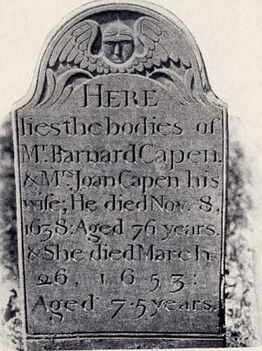 HERE
lies the bodies of
Mr. Barnard Capen.
& Mrs. Joan Capen his
wife; He died Nov. 8,
1638: Aged 76 years.
& She died March
26, 1653:
Aged 75 years